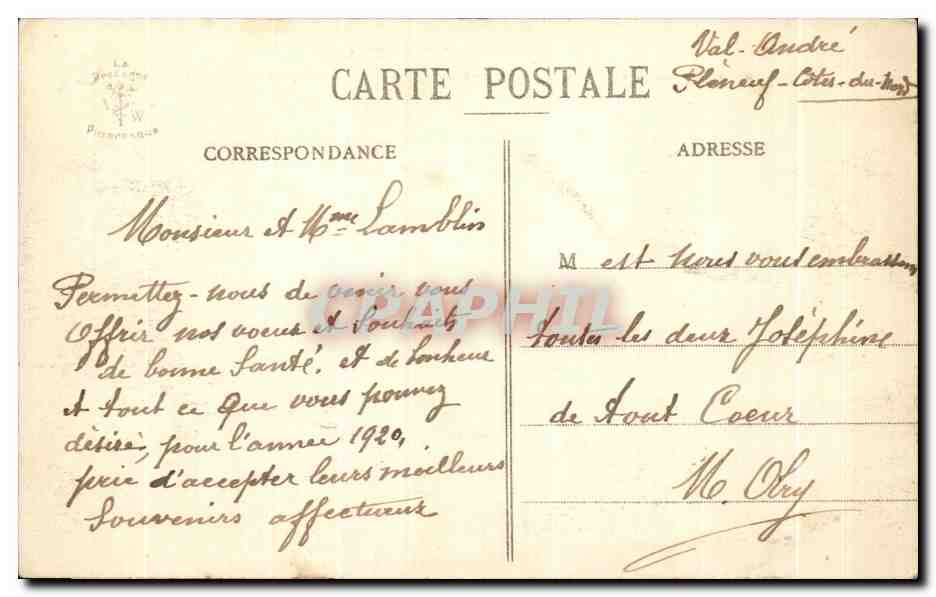 LA
Bretagne
W
Pittoresque
CARTE POSTALE
Val-André
Pléneuf-Côtes-du-Nord
CORRESPONDANCE
ADRESSE
Monsieur et Mme Lamblin
Permettez-nous de venir vous
offrir nos voeux et Souhaits
de bonne Santé, et de bonheur
et tout ce que vous pouvez
désiré, pour l'année 1920,
prie d'accepter leurs meilleurs
Souvenirs affectueux
M est nous vous embrassons
toutes les deux Joséphine
de tout Coeur
M. Olry
CPAPHIL